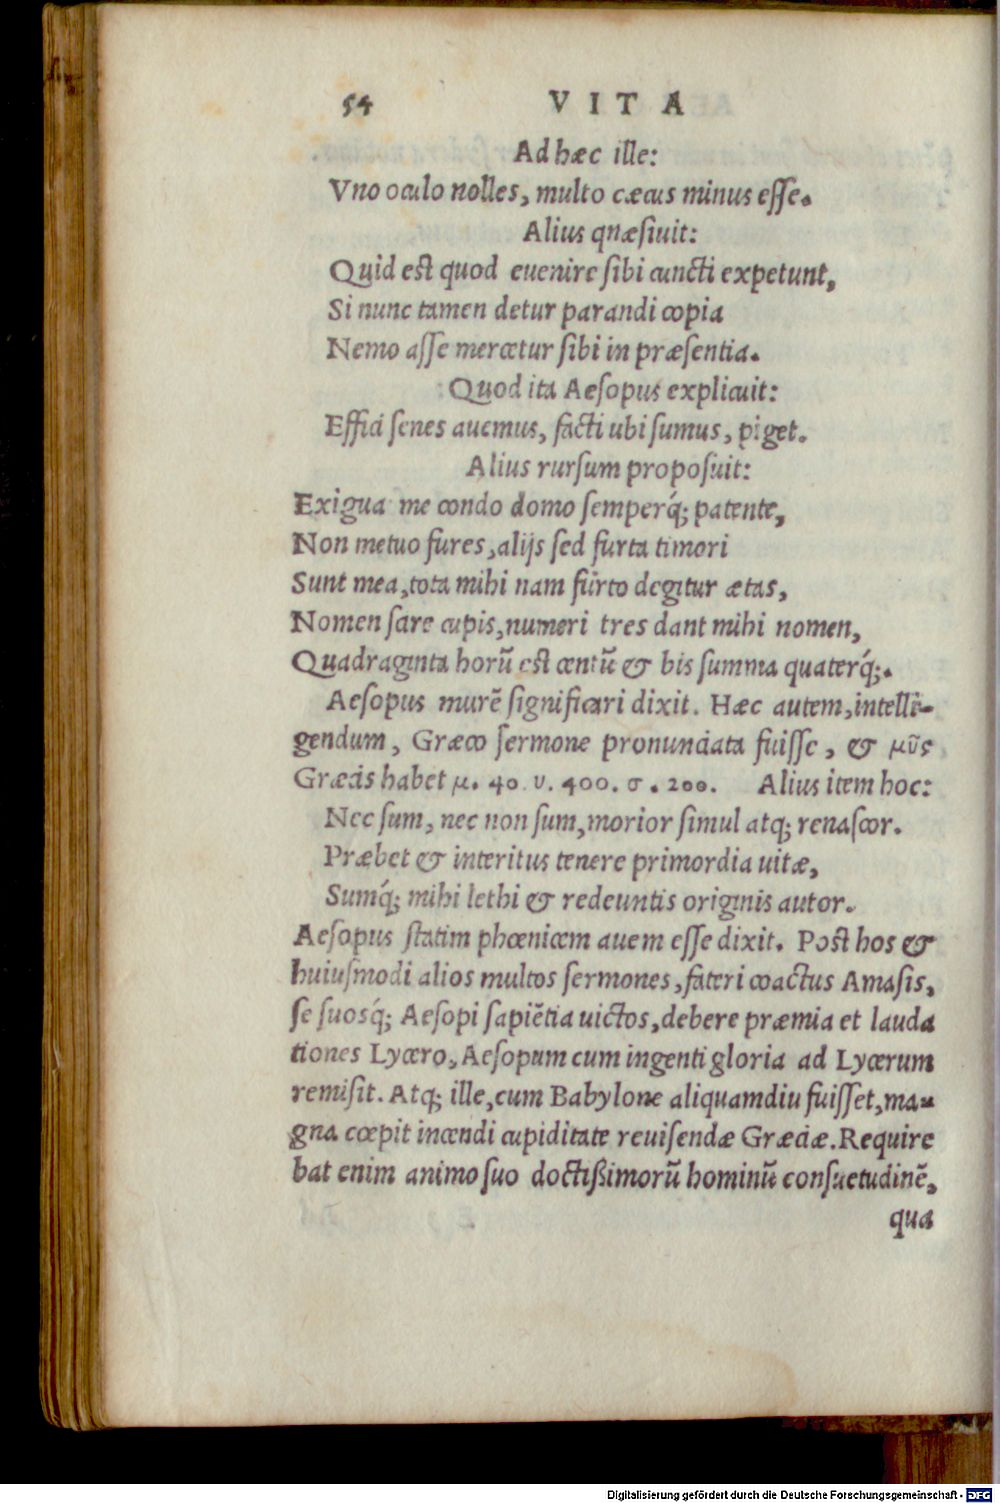 54 VITA
Ad hæc ille:
Vno oculo nolles, multo cæcus minus esse.
Alius qnæsiuit:
Quid est quod euenire sibi cuncti expetunt,
Si nunc tamen detur parandi copia
Nemo asse mercetur sibi in præsentia.
Quod ita Aesopus explicuit:
Effici senes auemus, facti ubi sumus, piget.
Alius rursum proposuit:
Exigua me condo domo semperq́; patente,
Non metuo fures, alijs sed furta timori
Sunt mea, tota mihi nam furto degitur ætas,
Nomen scire cupis, numeri tres dant mihi nomen,
Quadraginta horũ est centũ & bis summa quaterq́;.
Aesopus murẽ significari dixit. Hæc autem, intelli-
gendum, Græco sermone pronunciata fuisse, & μῦς
Græcis habet μ. 40. υ. 400. σ. 200. Alius item hoc:
Nec sum, nec non sum, morior simul atq; renascor.
Præbet & interitus tenere primordia uitæ,
Sumq́; mihi lethi & redeuntis originis autor.
Aesopus statim phœnicem auem esse dixit. Post hos &
huiusmodi alios multos sermones, fateri coactus Amasis,
se suosq́; Aesopi sapiẽtia uictos, debere præmia et lauda
tiones Lycero, Aesopum cum ingenti gloria ad Lycerum
remisit. Atq; ille, cum Babylone aliquamdiu fuisset, ma-
gna cœpit incendi cupiditate reuisendæ Græciæ. Require
bat enim animo suo doctißimorũ hominũ consuetudinẽ,
qua
Digitalisierung gefördert durch die Deutsche Forschungsgemeinschaft - DFG